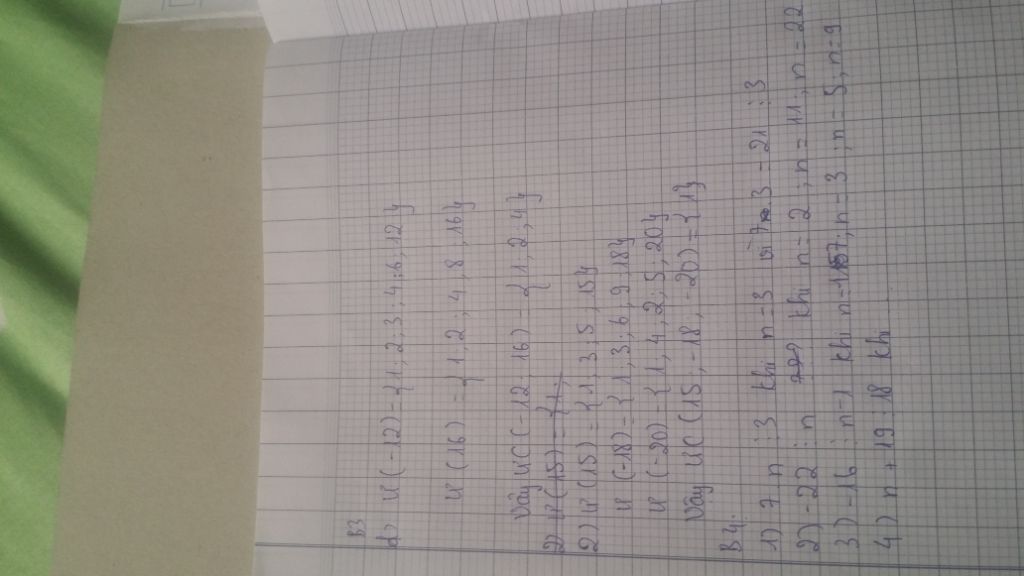 B3
1) Ư(-12) = { 1, 2, 3, 4, 6, 12 }
Ư(16) = { 1, 2, 4, 8, 16 }
Vây ƯC(-12, 16) = { 1, 2, 4 }
2) Ư(15) = { 1,
2) Ư(15) = { 1, 3, 5, 15 }
Ư(-18) = { 1, 3, 6, 9, 18 }
Ư(-20) = { 1, 4, 2, 5, 20 }
Vây ƯC(15, -18, -20) = { 1 }
B4.
1) 7 n ⋮ 3 khi n = 3 vì 7 . 3 = 21 ⋮ 3
2) -22 ⋮ n khi n = 2 ; n = 11 ; n = 22
3) -16 ⋮ n-1 khi n = 17 ; n = 3 ; n = 5 ; n = 9
4) n + 19 ⋮ 18 khi